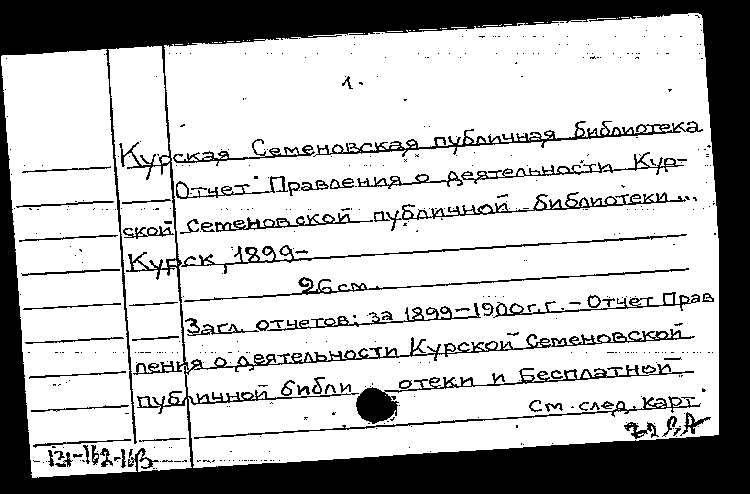 1.
Курская Семеновская публичная библиотека
Отчет Правления о деятельности Кур-
ской Семеновской публичной библиотеки...
Курск, 1899-
26 см.
Загл. отчетов: за 1899-1900 г.г. - Отчет Прав
ления о деятельности Курской Семеновской
публичной библиотеки и Бесплатной
См. след. карт.
131-162-163